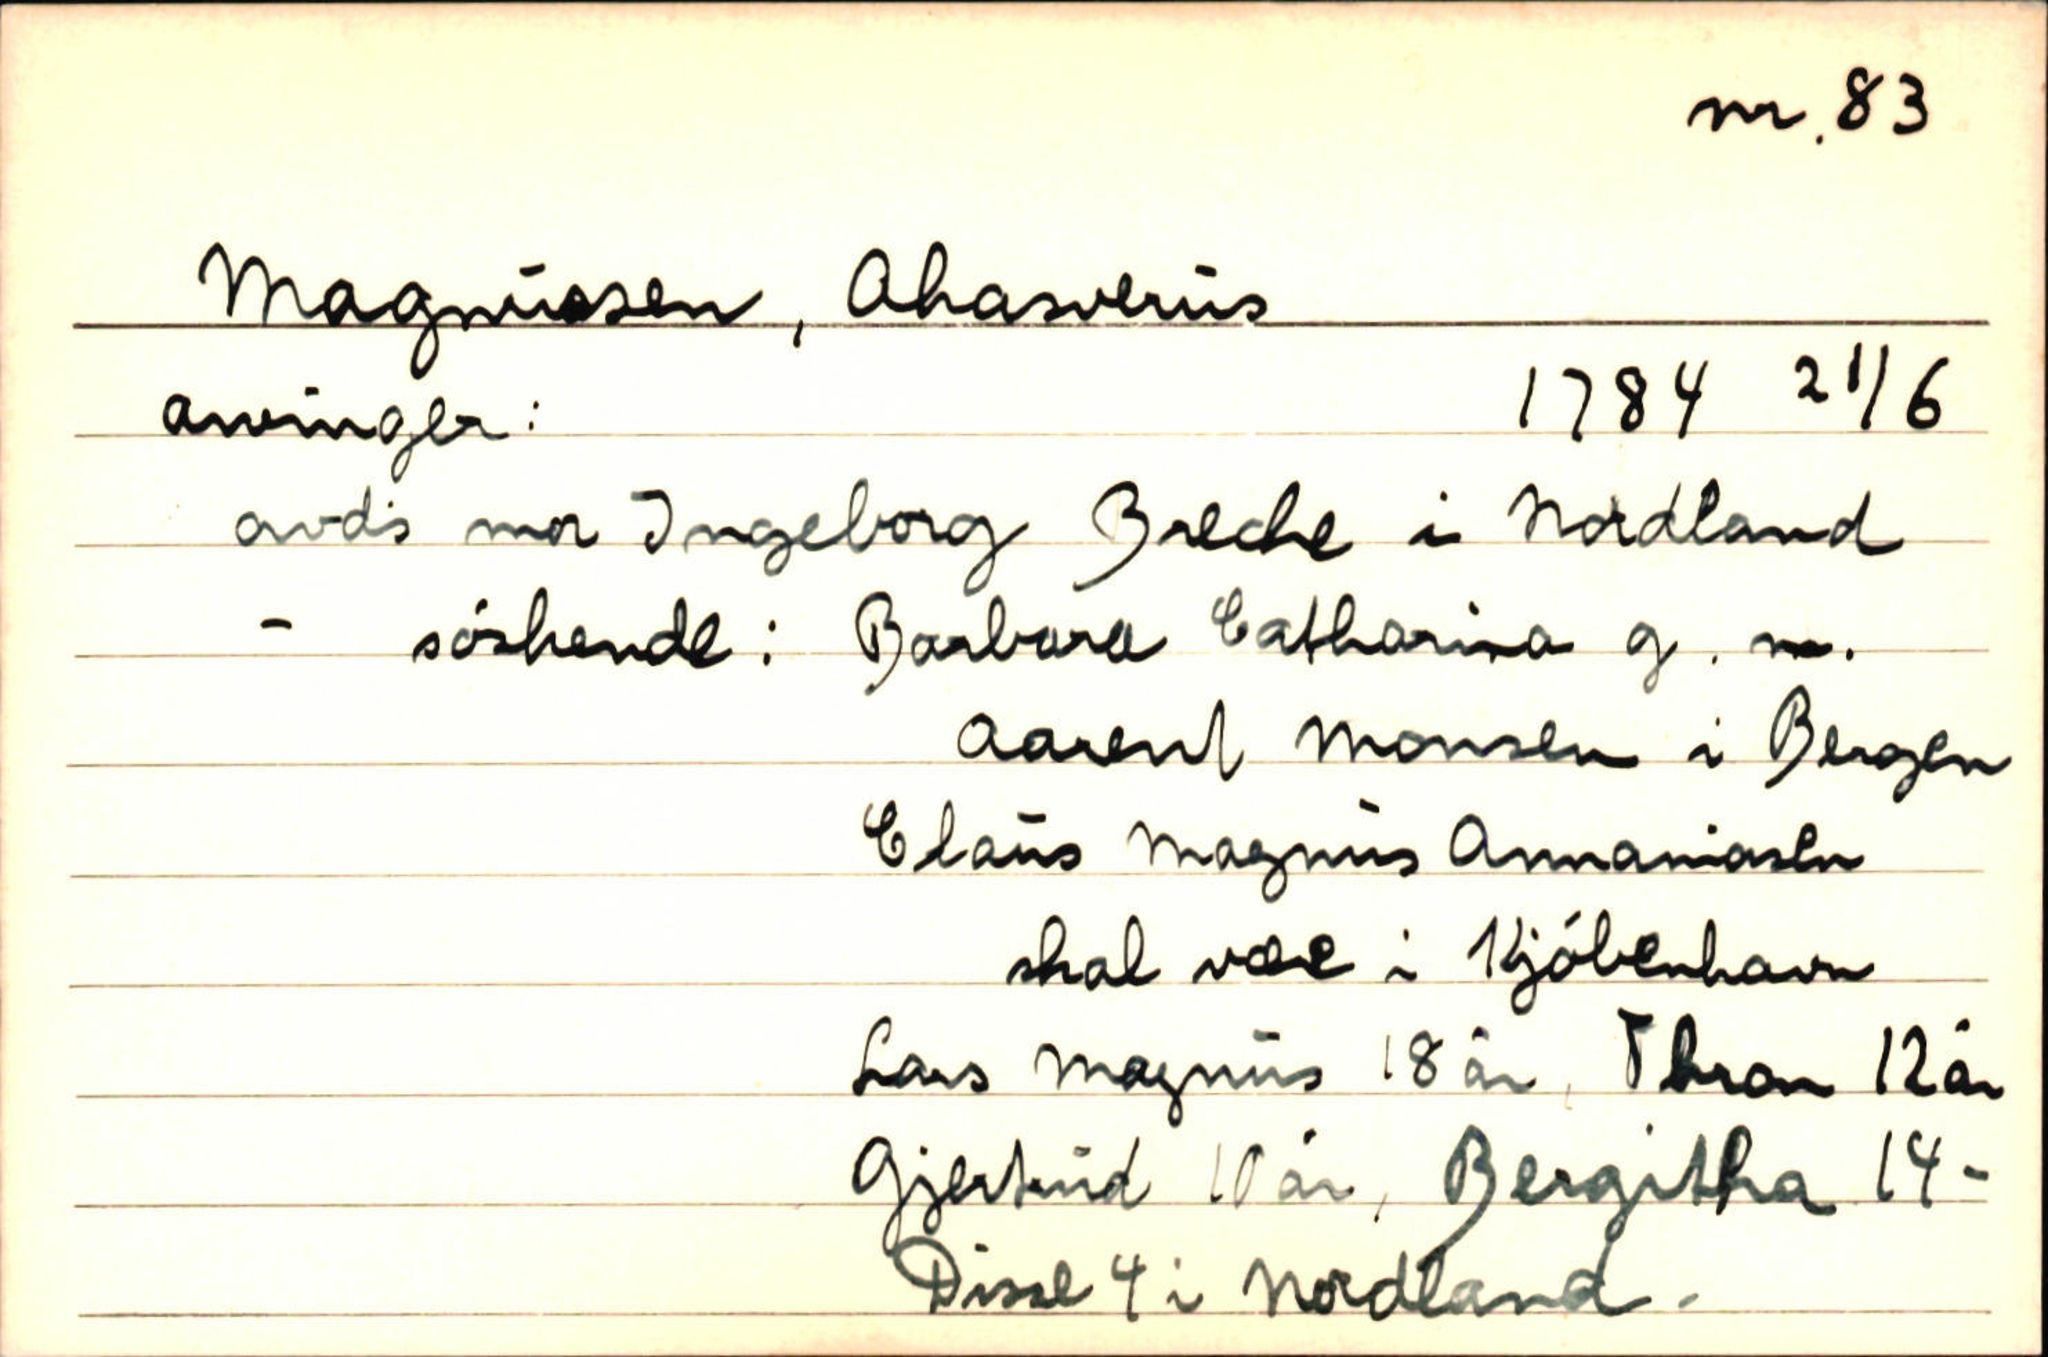 nr. 83
Magnussen, Ahasverus
arvinger: 1784 21/6
avd's mor Ingeborg Breche i Nordland
- søskende: Barbara Catharina g. m.
Aarent Monsen i Bergen
Claus Magnus Annaniasen
skal være i Kjøbenhavn
Lars Magnus 18 år, Thron 12 år
Gjertrud 10 år, Bergitha 14 -
Disse 4 i Nordland.